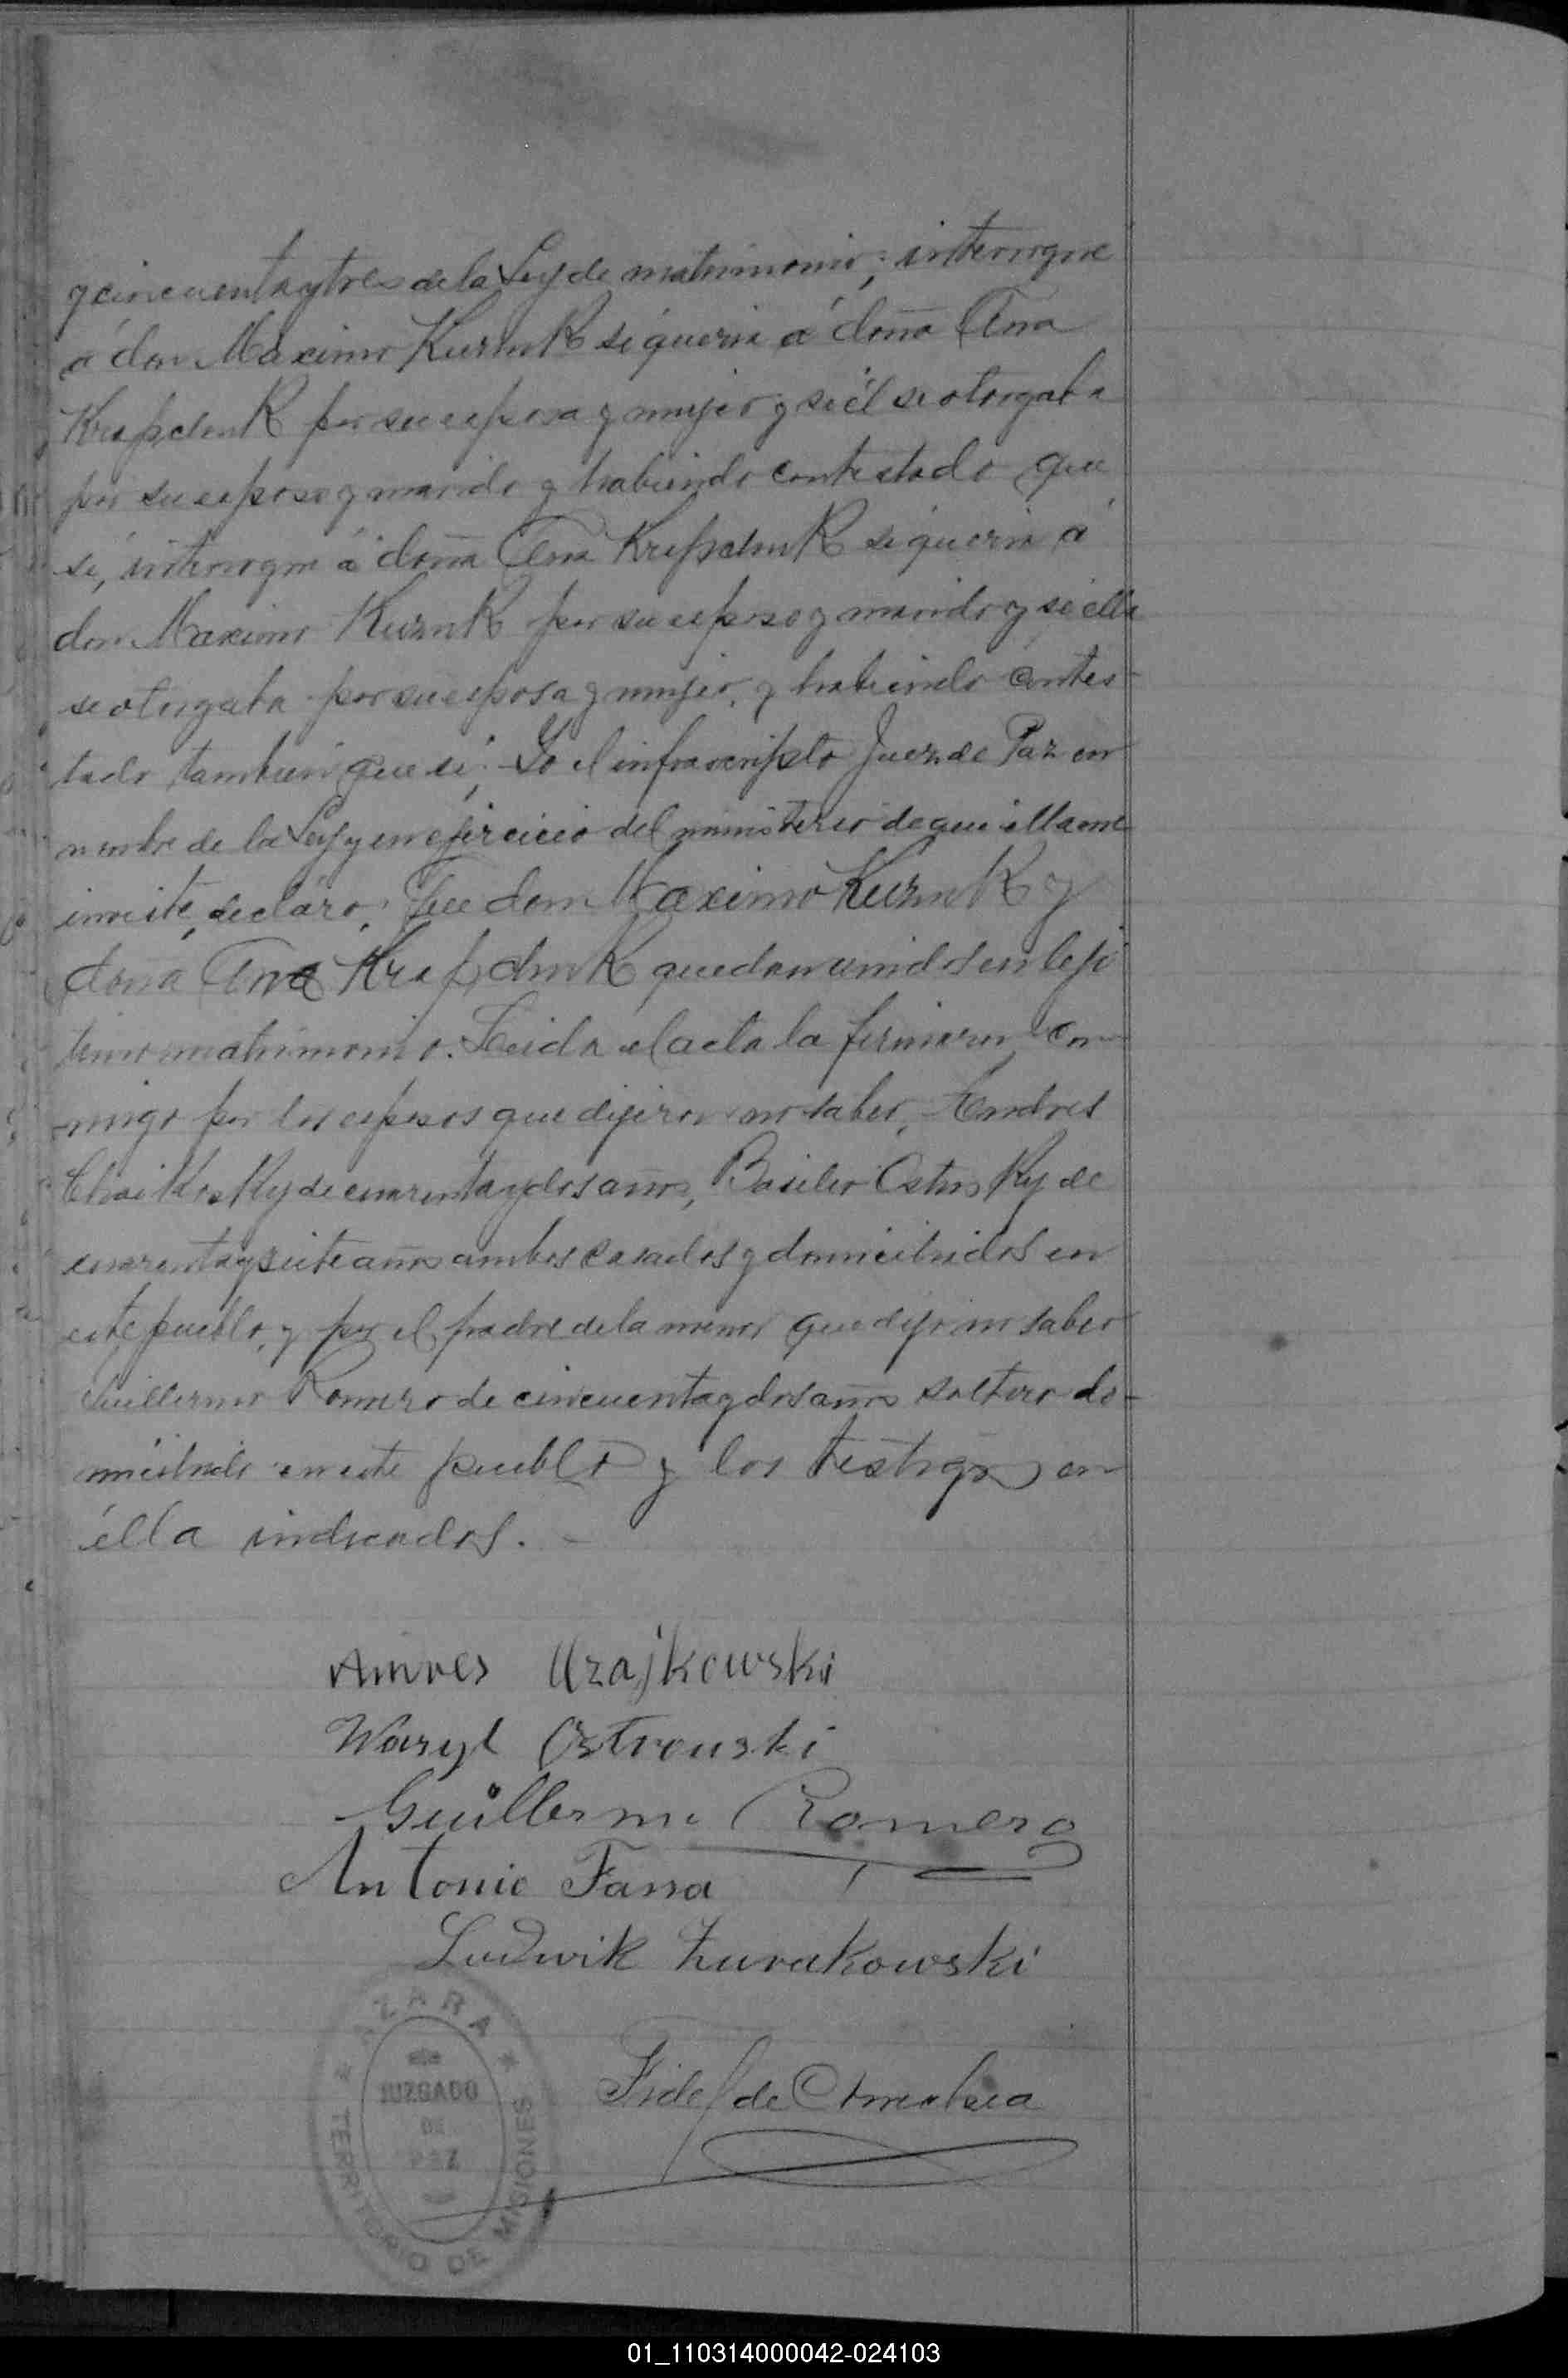 y cincuenta y tres de la Ley de matrimonio; interrogue
a don Maximo KuznK si queria á doña Ana
por su esposa y mujer y si él se otorgaba
por su esposo y marido y habiendo contestado que
sí, interrogue á doña Ana si queria á
don Maximo KuznK por su esposo y marido y si ella
se otorgaba por su esposa y mujer, y habiendo contes-
tado tambien que sí; Yo el infrascripto Juez de Paz en
nombre de la Ley y en ejercicio del ministerio de que ella me
inviste, declaro; Que don Maximo KuznK y
dona Ana quedan unidos en leji
timo matrimonio. Leida el acta la firmaron con-
migo por los esposos que dijeron no saber, Andres
de cuarenta y dos anos, Basilio OstrosKy de
cuarenta y siete anos ambos casados y domiciliados en
este pueblo, y por el padre de la menor que dijo no saber
Guillermo Romero de cincuenta y dos anos soltero do-
miciliado en este pueblo y los testigos en
élla indicados. -
Andres Czajkowski
Wasyl Ostrouski
Guillermo Romero
Antonio Farra
Ludwik Zurakowski
* AZARA *
JUZGADO
DE
PAZ
TERRITORIO DE MISIONES
Fidel de
01_110314000042-024103